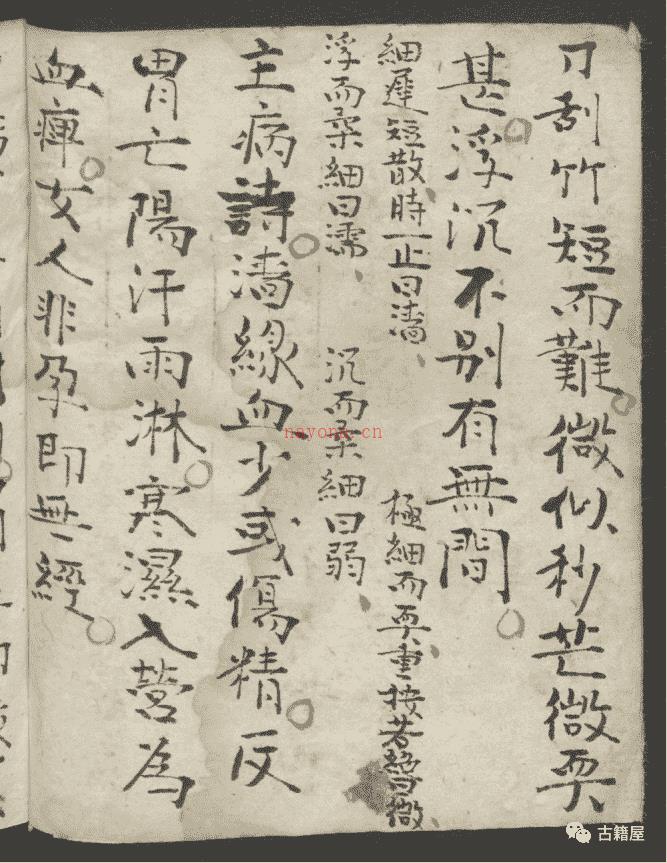 刀刮竹短而難微似秒芒微耎
甚浮沉不别有無間
細遲短散時一止曰濇、極細而耎重按若絕曰微、
浮而柔細曰濡、沉而柔細曰弱、
主病詩濇緣血少或傷精反
胃亡陽汗雨淋寒濕入營為
血痺女人非孕即無經
nayona.cn
古籍屋